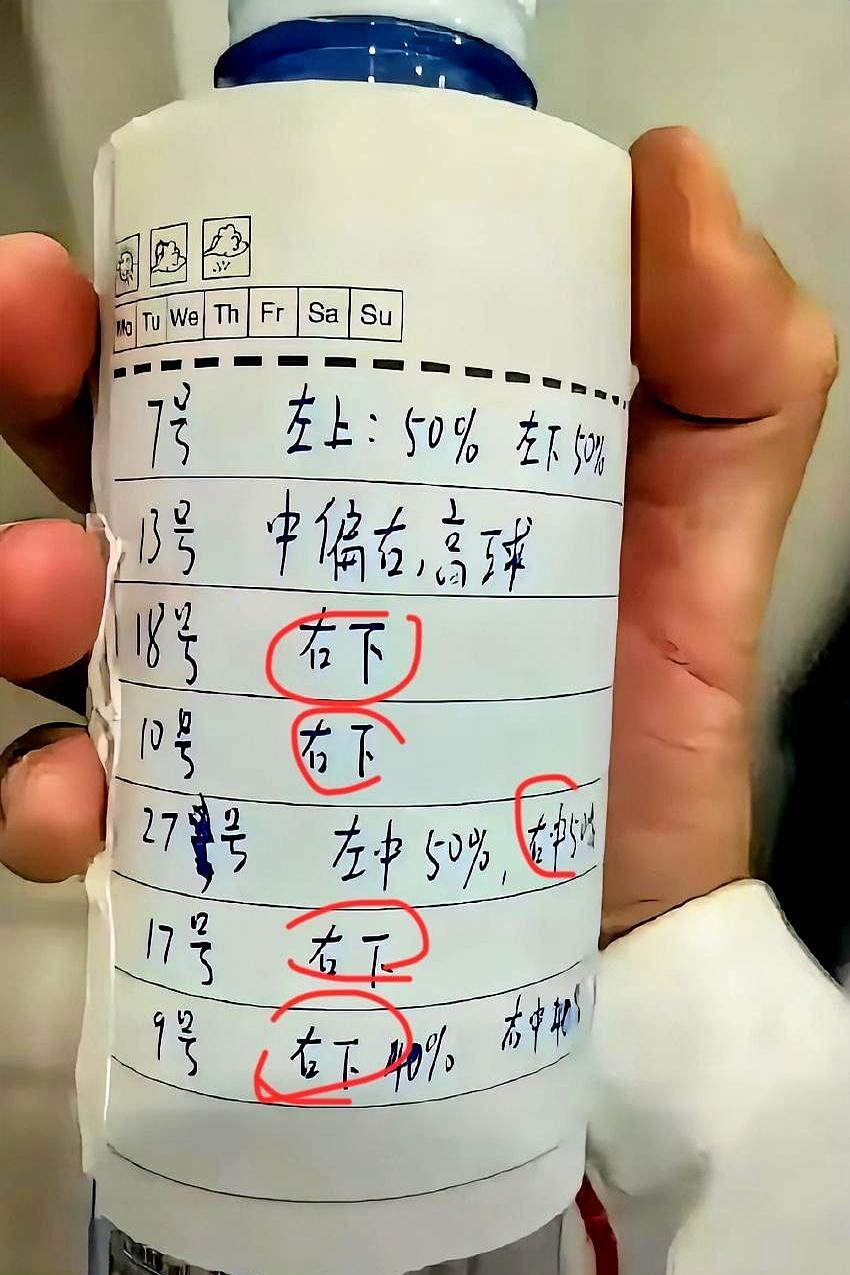 Mo Tu We Th Fr Sa Su
7号 左上：50% 左下50%
13号 中偏右，高球
18号 右下
10号 右下
27号 左中50%，右中50%
17号 右下
9号 右下 40% 右中